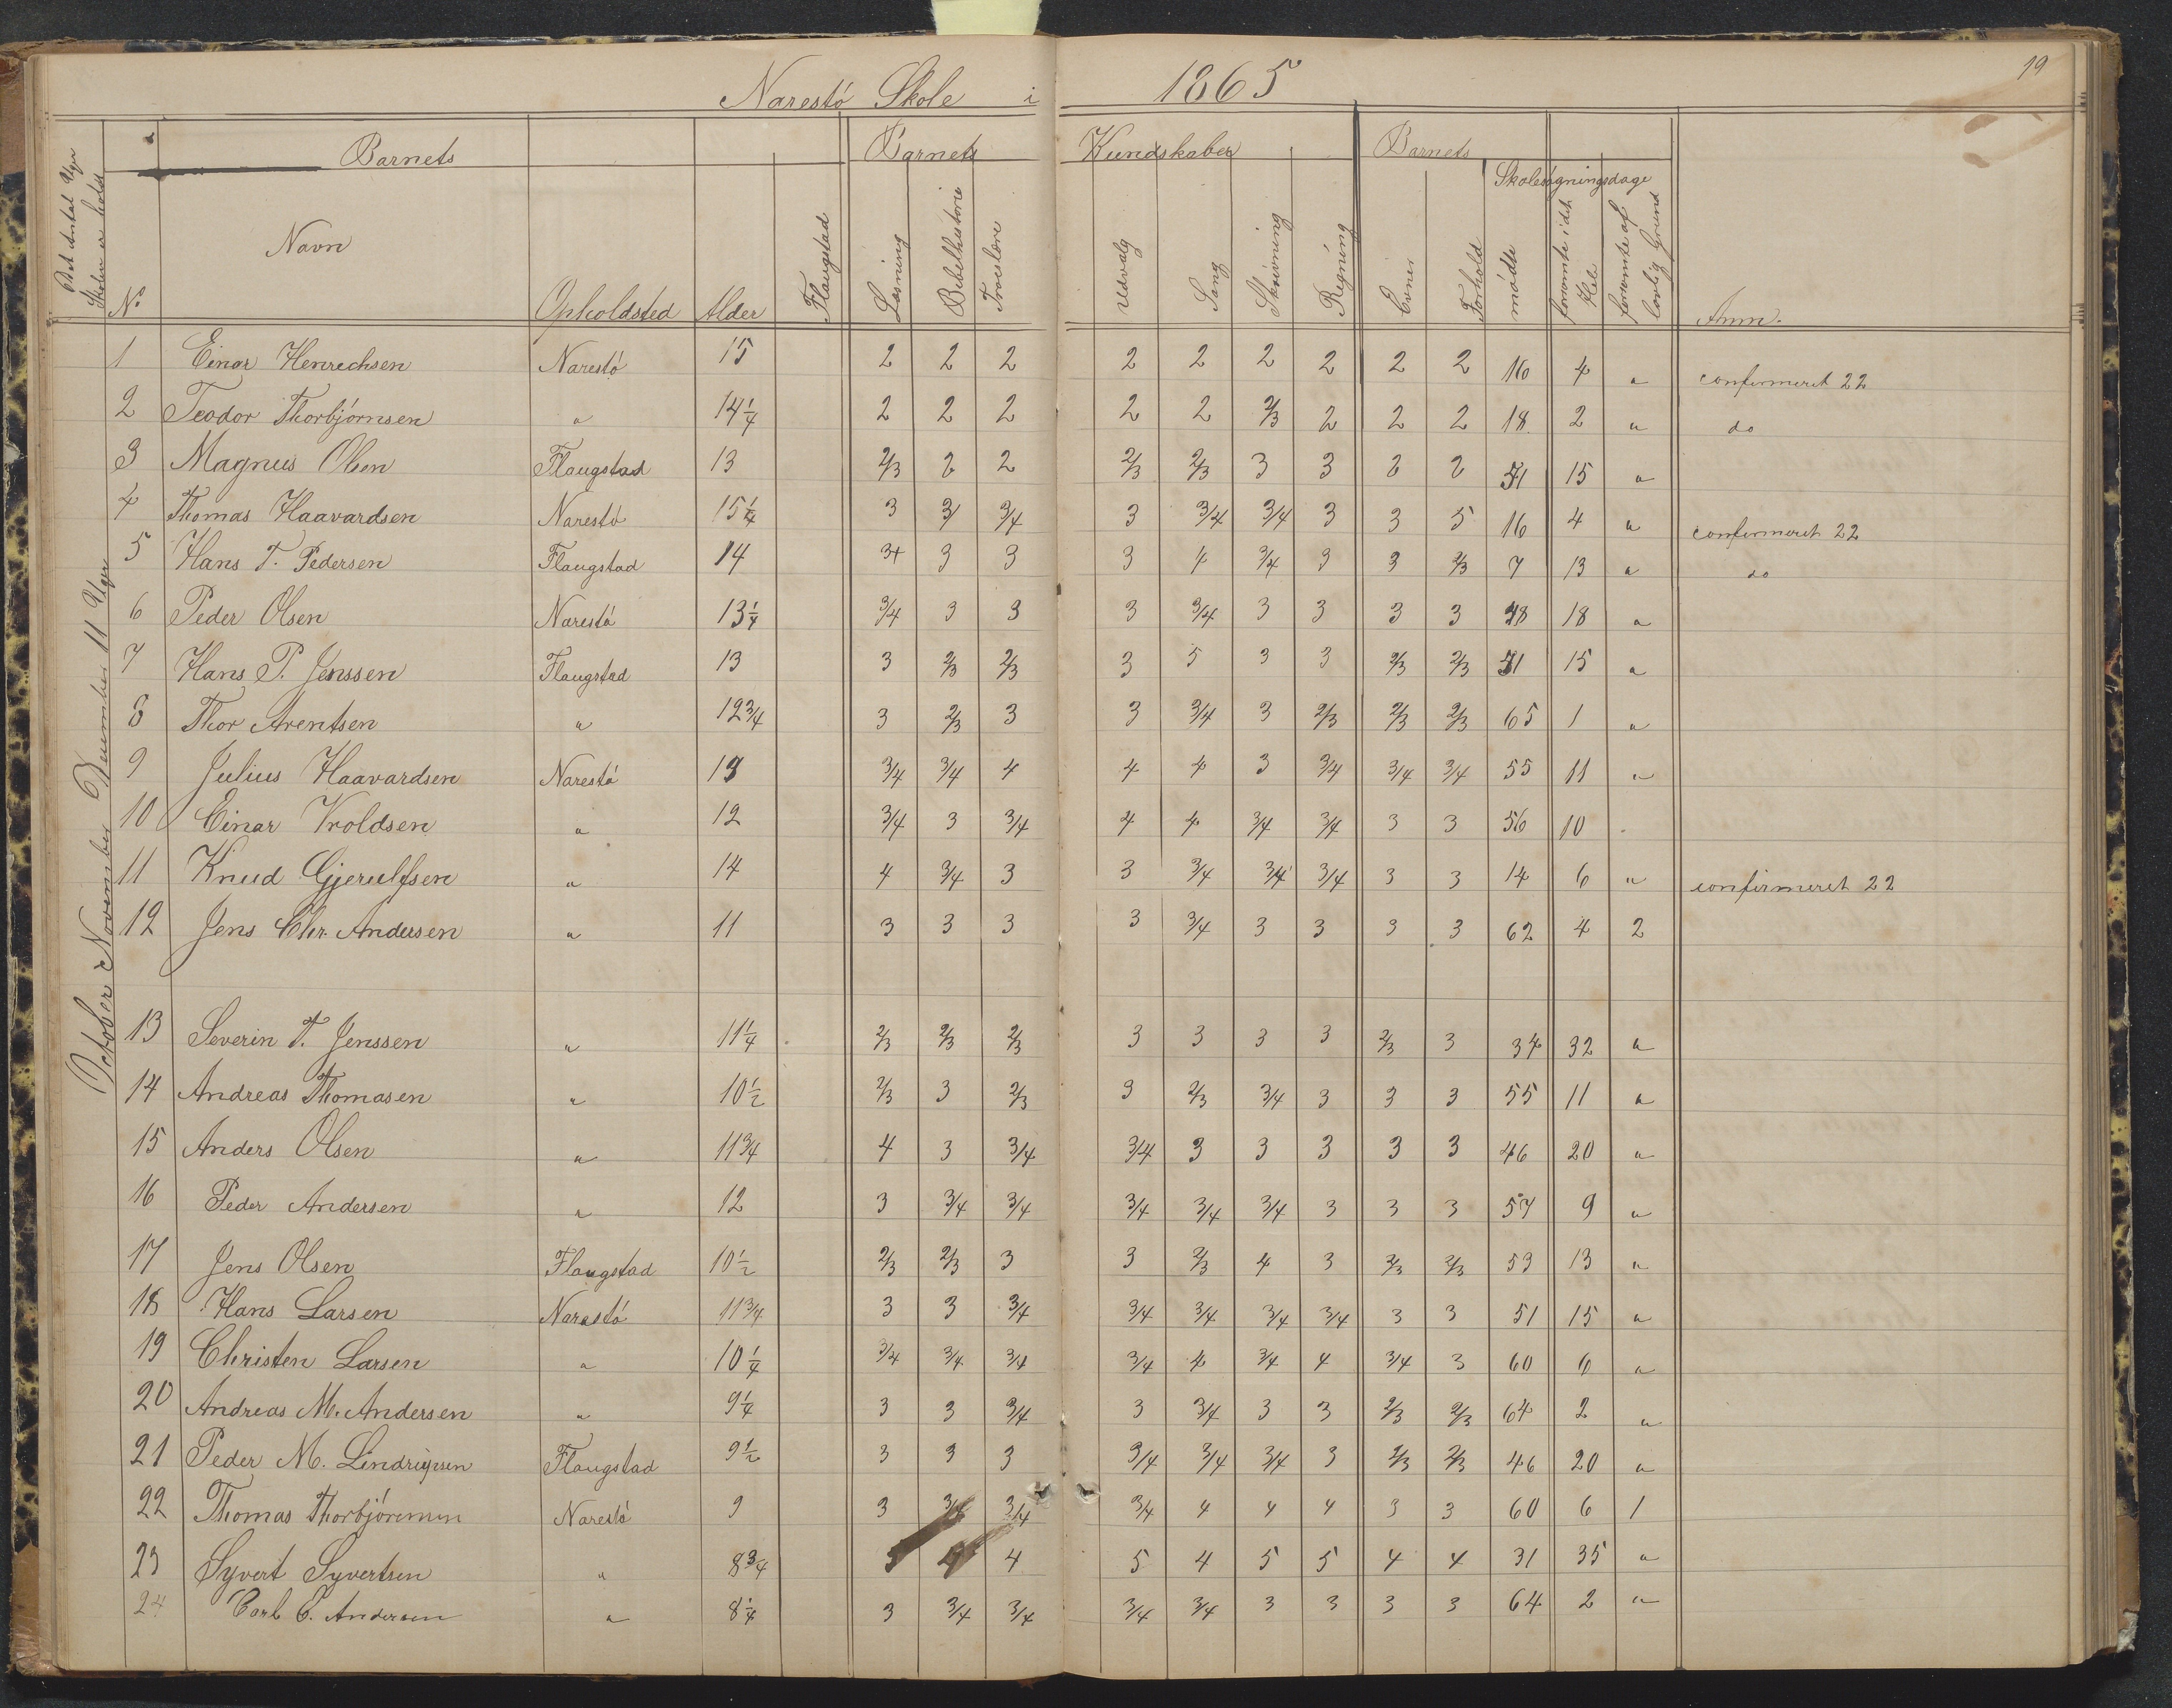 19
Narestö Skole i 1865
Det Antal Uger Skolen er holdt
Barnets
Barnets Kundskaber
Barnets
Skolesøgningsdage
No Navn Opholdsted Alder Flaugstad Læsning Bibelhistorie Troeslære Udvalg Sang Skrivning Regning Evner Forhold mödte forsömte i det Hele forsömte af lovlig Grund Anm.
October November December 11 Uger
1 Einar Henrechsen Narestö 15 2 2 2 2 2 2 2 2 2 16 4 " confirmeret 22
2 Teodor Thorbjörnsen " 14 1/4 2 2 2 2 2 2/3 2 2 2 18 2 " do
3 Magnus Olsen Flaugstad 13 2/3 2 2 2/3 2/3 3 3 2 2 51 15 "
4 Thomas Haavardsen Narestö 15 1/4 3 3/ 3/4 3 3/4 3/4 3 3 5 16 4 " confirmeret 22
5 Hans T. Pedersen Flaugstad 14 3+ 3 3 3 4 3/4 3 3 2/3 7 13 " do
6 Peder Olsen Narestö 13 1/4 3/4 3 3 3 3/4 3 3 3 3 48 18 "
7 Hans P. Jenssen Flaugstad 13 3 2/3 2/3 3 5 3 3 2/3 2/3 51 15 "
8 Thor Arentsen " 12 3/4 3 2/3 3 3 3/4 3 2/3 2/3 2/3 65 1 "
9 Julius Haavardsen Narestö 13 3/4 3/4 4 4 4 3 3/4 3/4 3/4 55 11 "
10 Einar Vroldsen " 12 3/4 3 3/4 4 4 3/4 3/4 3 3 56 10
11 Knud Gjerulfsen " 14 4 3/4 3 3 3/4 3/4 3/4 3 3 14 6 " confirmeret 22
12 Jens Chr. Andersen " 11 3 3 3 3 3/4 3 3 3 3 62 4 2
13 Severin T. Jenssen " 11 1/4 2/3 2/3 2/3 3 3 3 3 2/3 3 34 32 "
14 Andreas Thomasen " 10 1/2 2/3 3 2/3 3 2/3 3/4 3 3 3 55 11 "
15 Anders Olsen " 11 3/4 4 3 3/4 3/4 3 3 3 3 3 46 20 "
16 Peder Andersen " 12 3 3/4 3/4 3/4 3/4 3/4 3 3 3 57 9 "
17 Jens Olsen Flaugstad 10 1/2 2/3 2/3 3 3 2/3 4 3 2/3 2/3 53 13 "
18 Hans Larsen Narestö 11 3/4 3 3 3/4 3/4 3/4 3/4 3/4 3 3 51 15 "
19 Christen Larsen " 10 1/4 3/4 3/4 3/4 3/4 4 3/4 4 3/4 3 60 6 "
20 Andreas M. Andersen " 9 1/4 3 3 3/4 3 3/4 3 3 2/3 2/3 64 2 "
21 Peder M. Flaugstad 9 1/2 3 3 3 3/4 3/4 3/4 3 2/3 2/3 46 20 "
22 Thomas Thorbjörnsen Narestö 9 3 3/4 3/4 3/4 4 4 4 3 3 60 6 1
23 Syvert Syvertsen " 8 3/4 5 4 5 4 5 5 4 4 31 35 "
24 Carl C. Andersen " 8 1/4 3 3/4 3/4 3/4 3/4 3 3 3 3 64 2 "